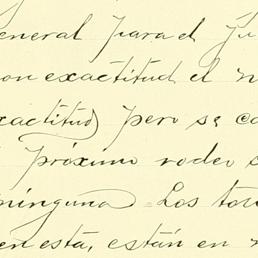 eneral para el Ju
on exactitud el n
xactitud) pero se ca
próximo rodeo s
ninguna. Los tor
en esta, están en